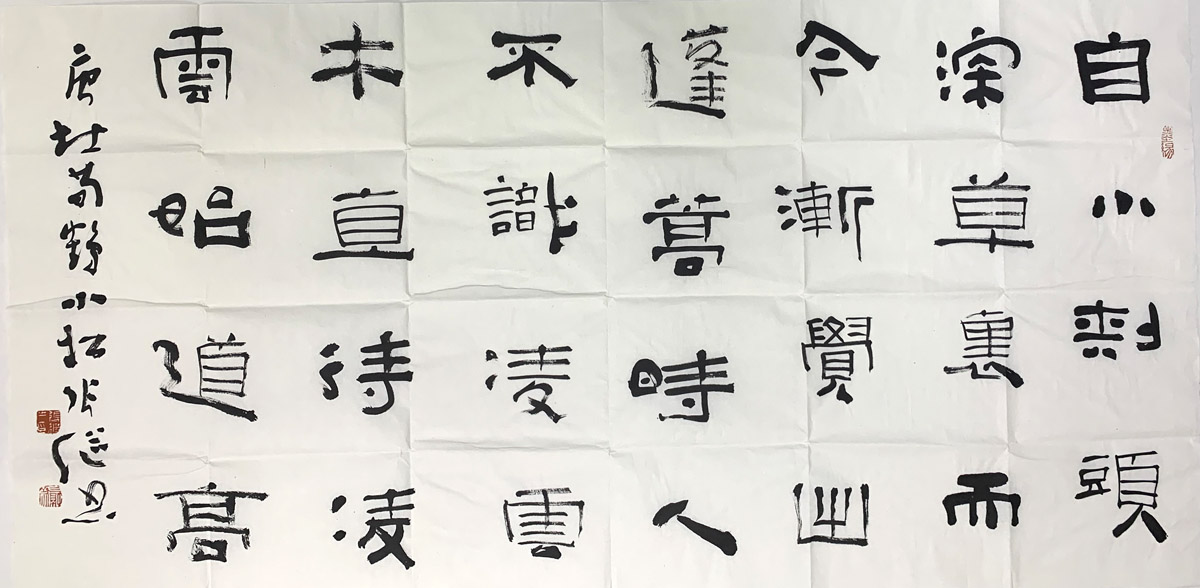 自小刺頭
深草裏而
今漸覺出
蓬蒿時人
不識凌雲
木直待凌
雲始道高
唐杜荀鶴小松张